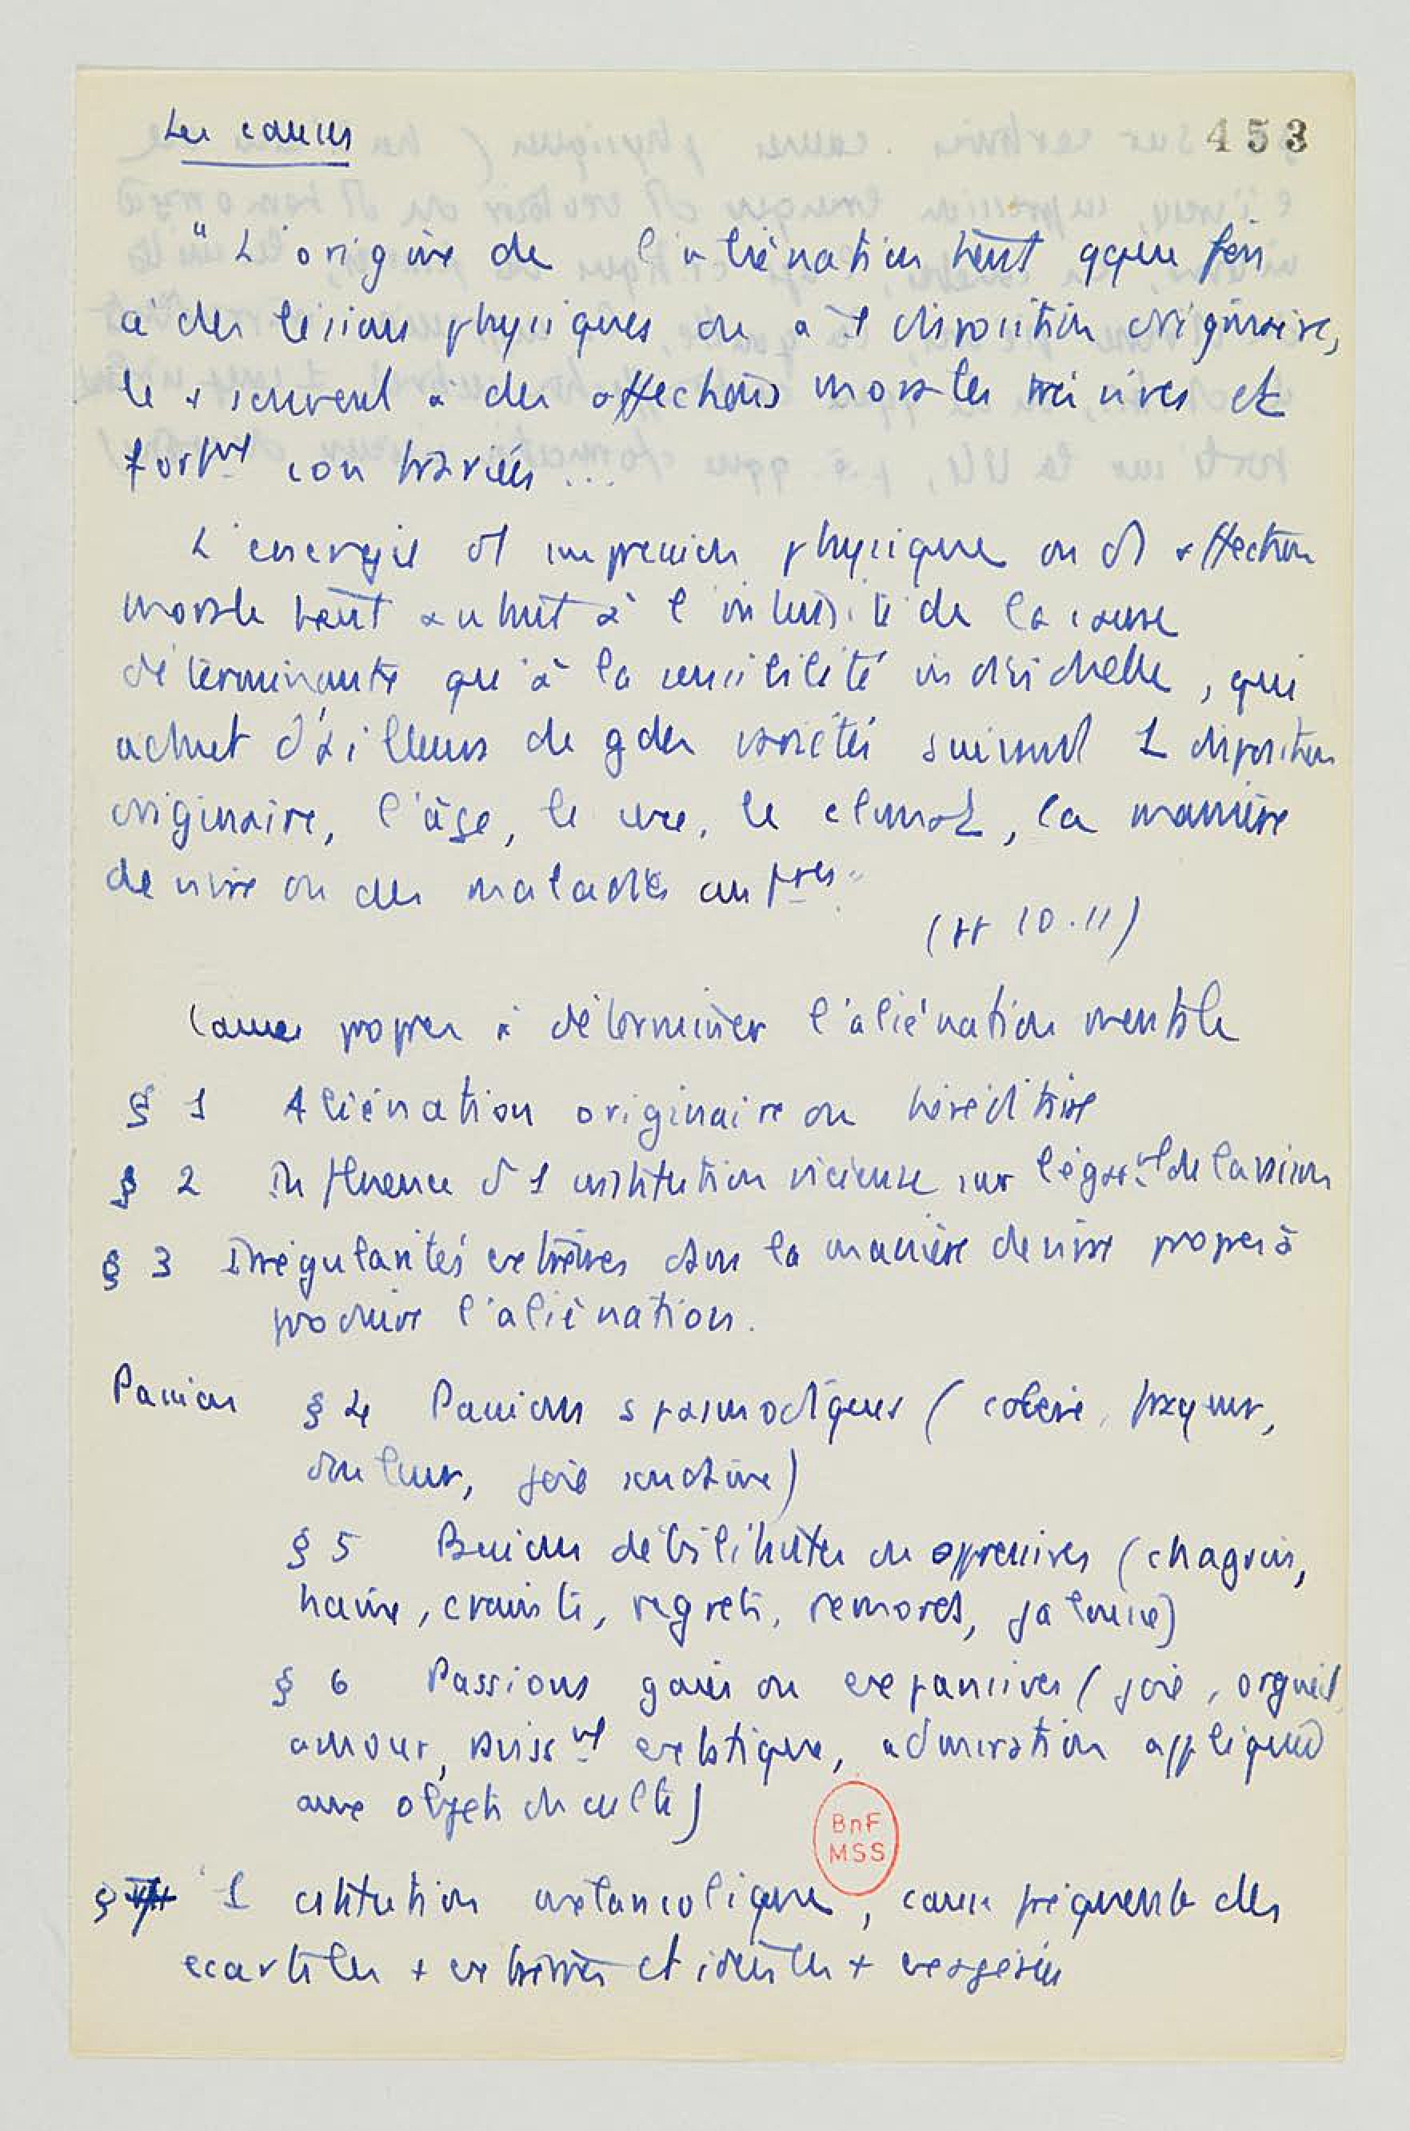 Les causes
453
"L'origine de l'aliénation tient qque fois
à des lésions physiques ou à 1 disposition originaire,
le + souvent à des affections morales très vives et
fortmt contrariées...
L'énergie d'1 impression physique ou d'1 affection
morale tient autant à l'intensité de la cause
déterminante qu'à la sensibilité individuelle, qui
admet d'ailleurs de gdes variétés suivant 1 disposition
originaire, l'âge, le sexe, le climat, la manière
de vivre ou des maladies
(10.11)
Causes propres à déterminer l'aliénation mentale
§ 1 Aliénation originaire ou héréditaire
§ 2 Influence d'1 institution vicieuse sur l'égaremt de la raison
§ 3 Irrégularités extrêmes dans la manière de vivre propres à
produire l'aliénation.
Passions § 4 Passions spasmodiques (colère, frayeur,
douleur, joie soudaine)
§ 5 Passions débilitantes ou oppressives (chagrin,
haine, crainte, regrets, remords, jalousie)
§ 6 Passions gaies ou expansives (joie, orgueil,
amour, extatique, admiration appliquée
aux objets du culte)
BnF
MSS
§ 1 cstitution mélancolique, cause fréquente des
écarts les + extrêmes et idées les + exagérées